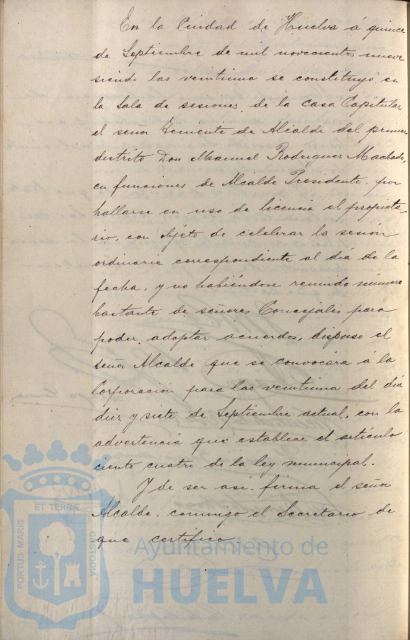 En la Ciudad de Huelva a quince
de Septiembre de mil novecientos nueve
siendo las veintiuna se constituyó en
la Sala de sesiones, de la casa Capitular
el señor Teniente de Alcalde del primer
distrito Don Manuel Rodriguez Machado,
en funciones de Alcalde Presidente, por
hallarse en uso de licencia el propieta-
rio, con objeto de celebrar la sesión
ordinaria correspondiente al dia de la
fecha, y no habiéndose reunido número
bastante de señores Concejales para
poder adoptar acuerdos, dispuso el
señor Alcalde que se convocára á la
Corporación para las veintiuna del dia
diez y siete de Septiembre actual, con la
advertencia que establece el artículo
ciento cuatro de la ley municipal.
Y de ser asi, firma el señor
Alcalde, conmigo el Secretario de
que certifico
PORTUS MARIS
ET TERRÆ
CUSTODIA
Ayuntamiento de
HUELVA